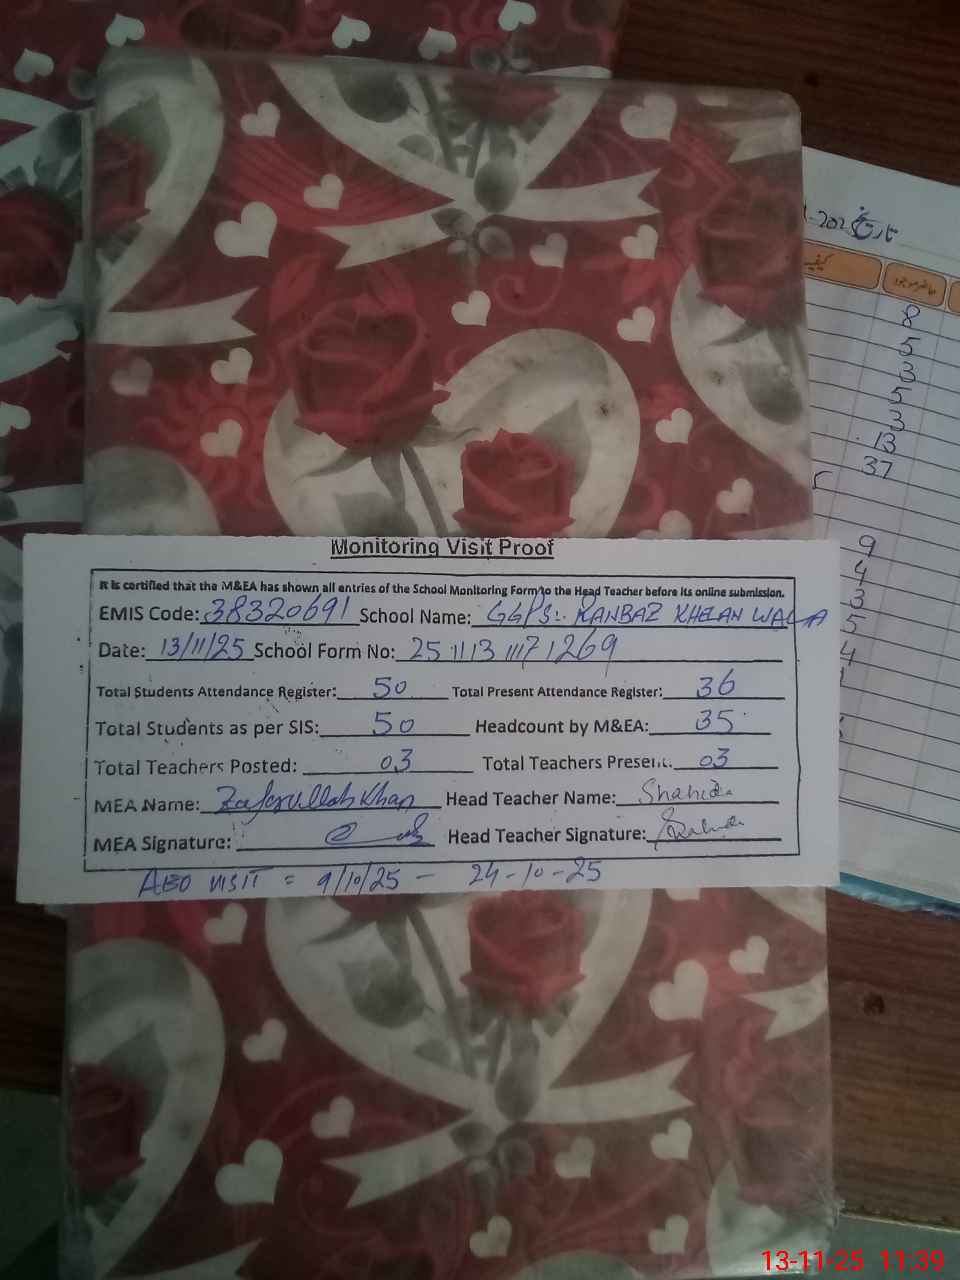 تاریخ
کیفیت حاضر موجود
8
5
3
5
3
13
37
9
4
3
5
4
Monitoring Visit Proof
It is certified that the M&EA has shown all entries of the School Monitoring Form to the Head Teacher before its online submission.
EMIS Code: 38320691 School Name: GGPS. RANBAZ KHELAN WALA
Date: 13/11/25 School Form No:
Total Students Attendance Register: 50 Total Present Attendance Register: 36
Total Students as per SIS: 50 Headcount by M&EA: 35
Total Teachers Posted: 03 Total Teachers Present: 03
MEA Name: Zafarullah Khan Head Teacher Name: Shahida
MEA Signature: Head Teacher Signature: Shahida
AEO VISIT = 9/10/25 - 24-10-25
13-11-25 11:39